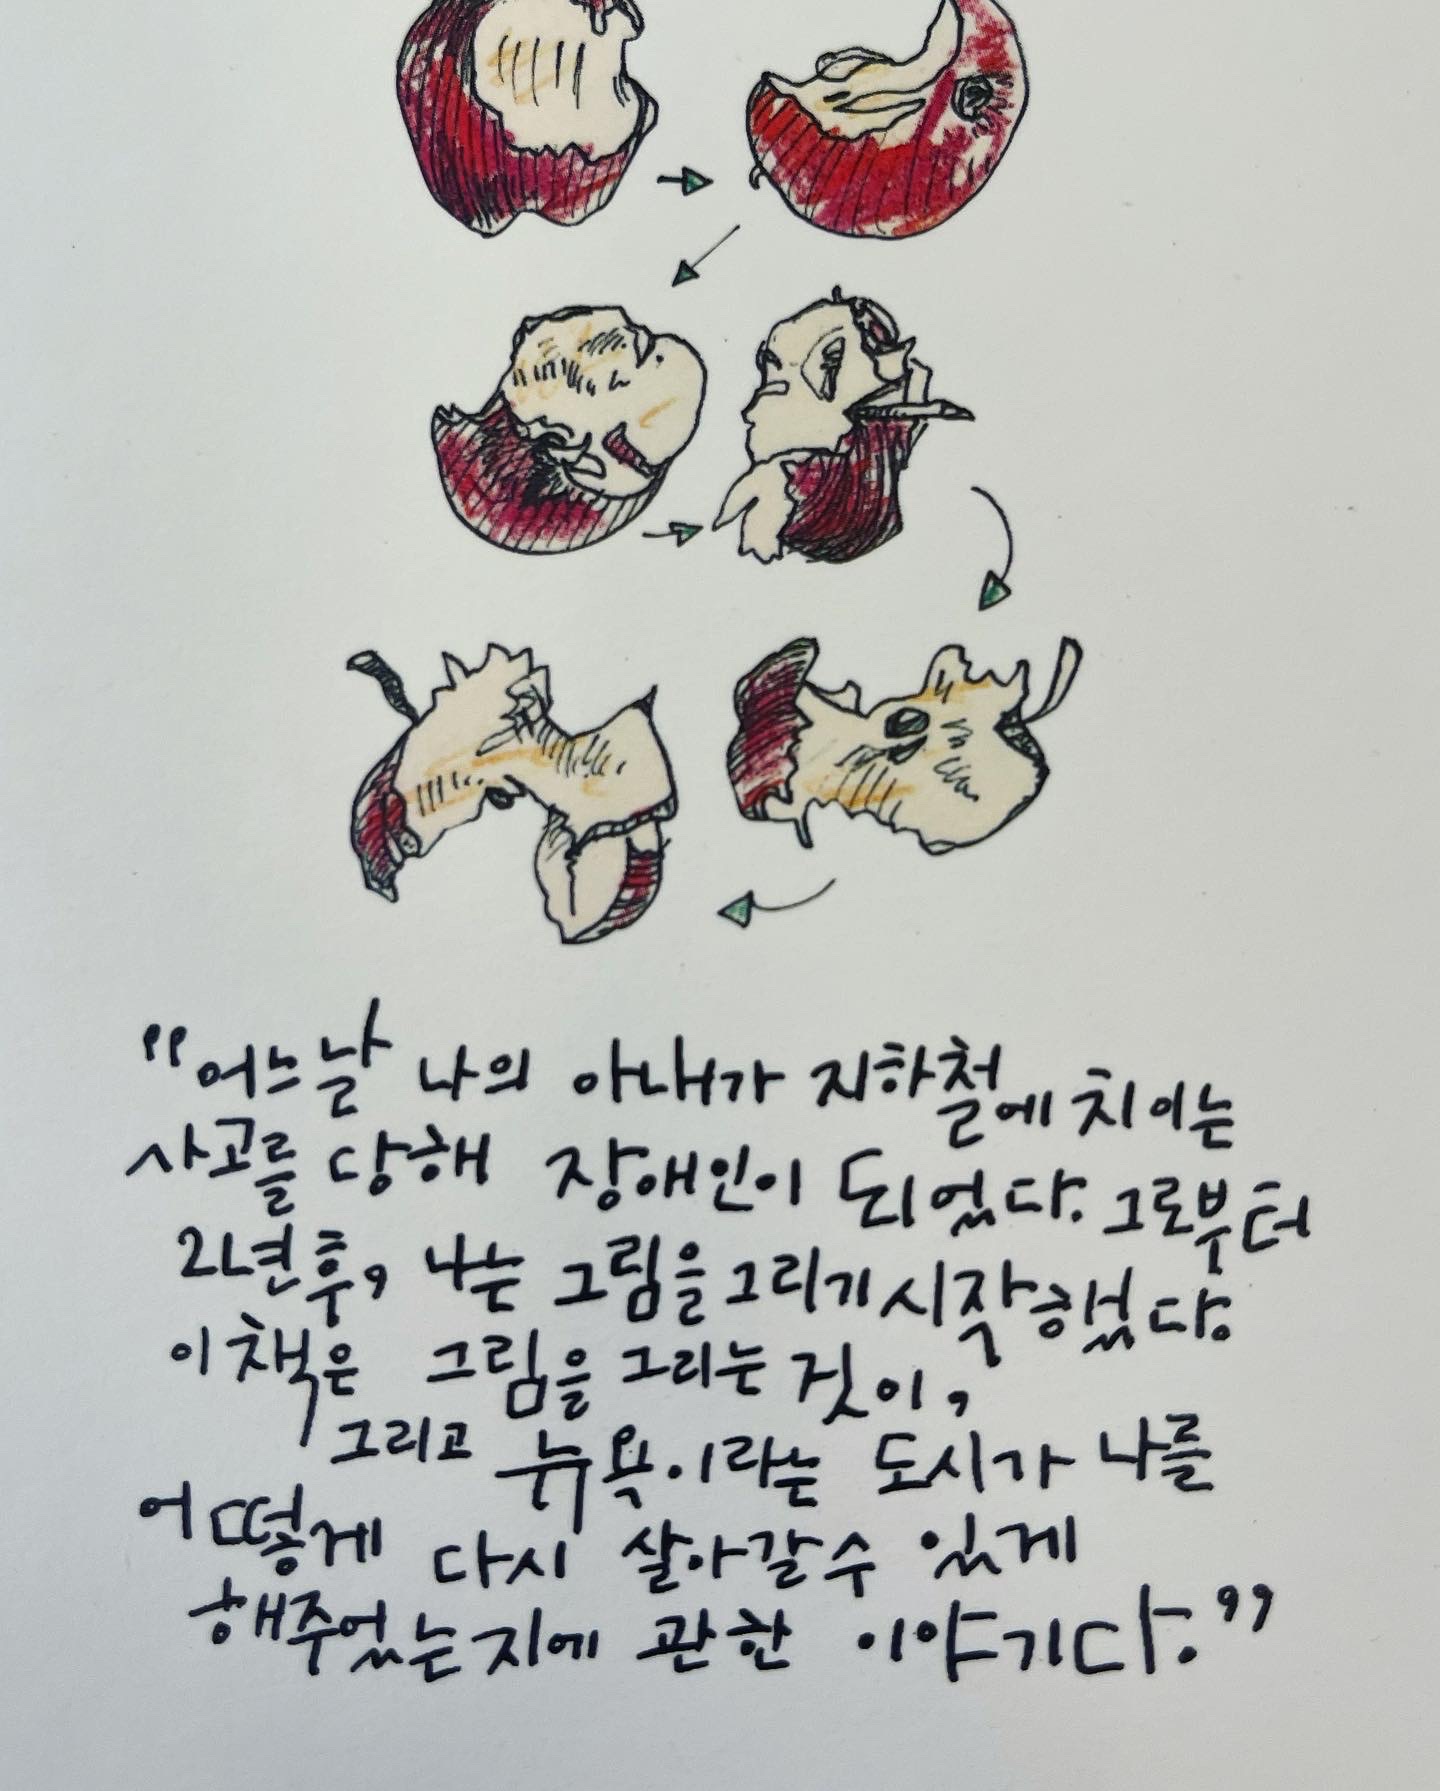 "어느날 나의 아내가 지하철에 치이는
사고를 당해 장애인이 되었다. 그로부터
2년후, 나는 그림을 그리기 시작했다.
이 책은 그림을 그리는 것이,
그리고 뉴욕이라는 도시가 나를
어떻게 다시 살아갈 수 있게
해주었는지에 관한 이야기다."